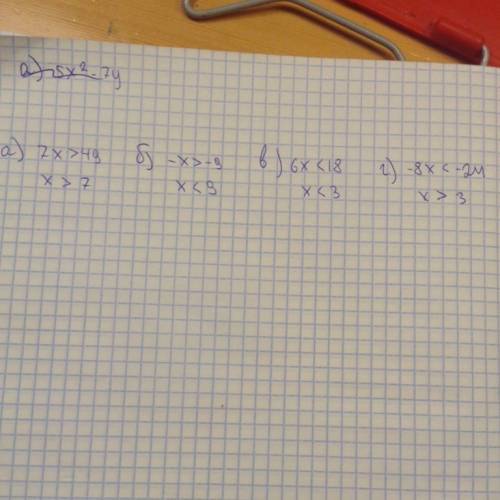 а) 5x²-7y
а) 7x>49 б) -x>-9 в) 6x<18 г) -8x<-24
x>7 x<9 x<3 x>3